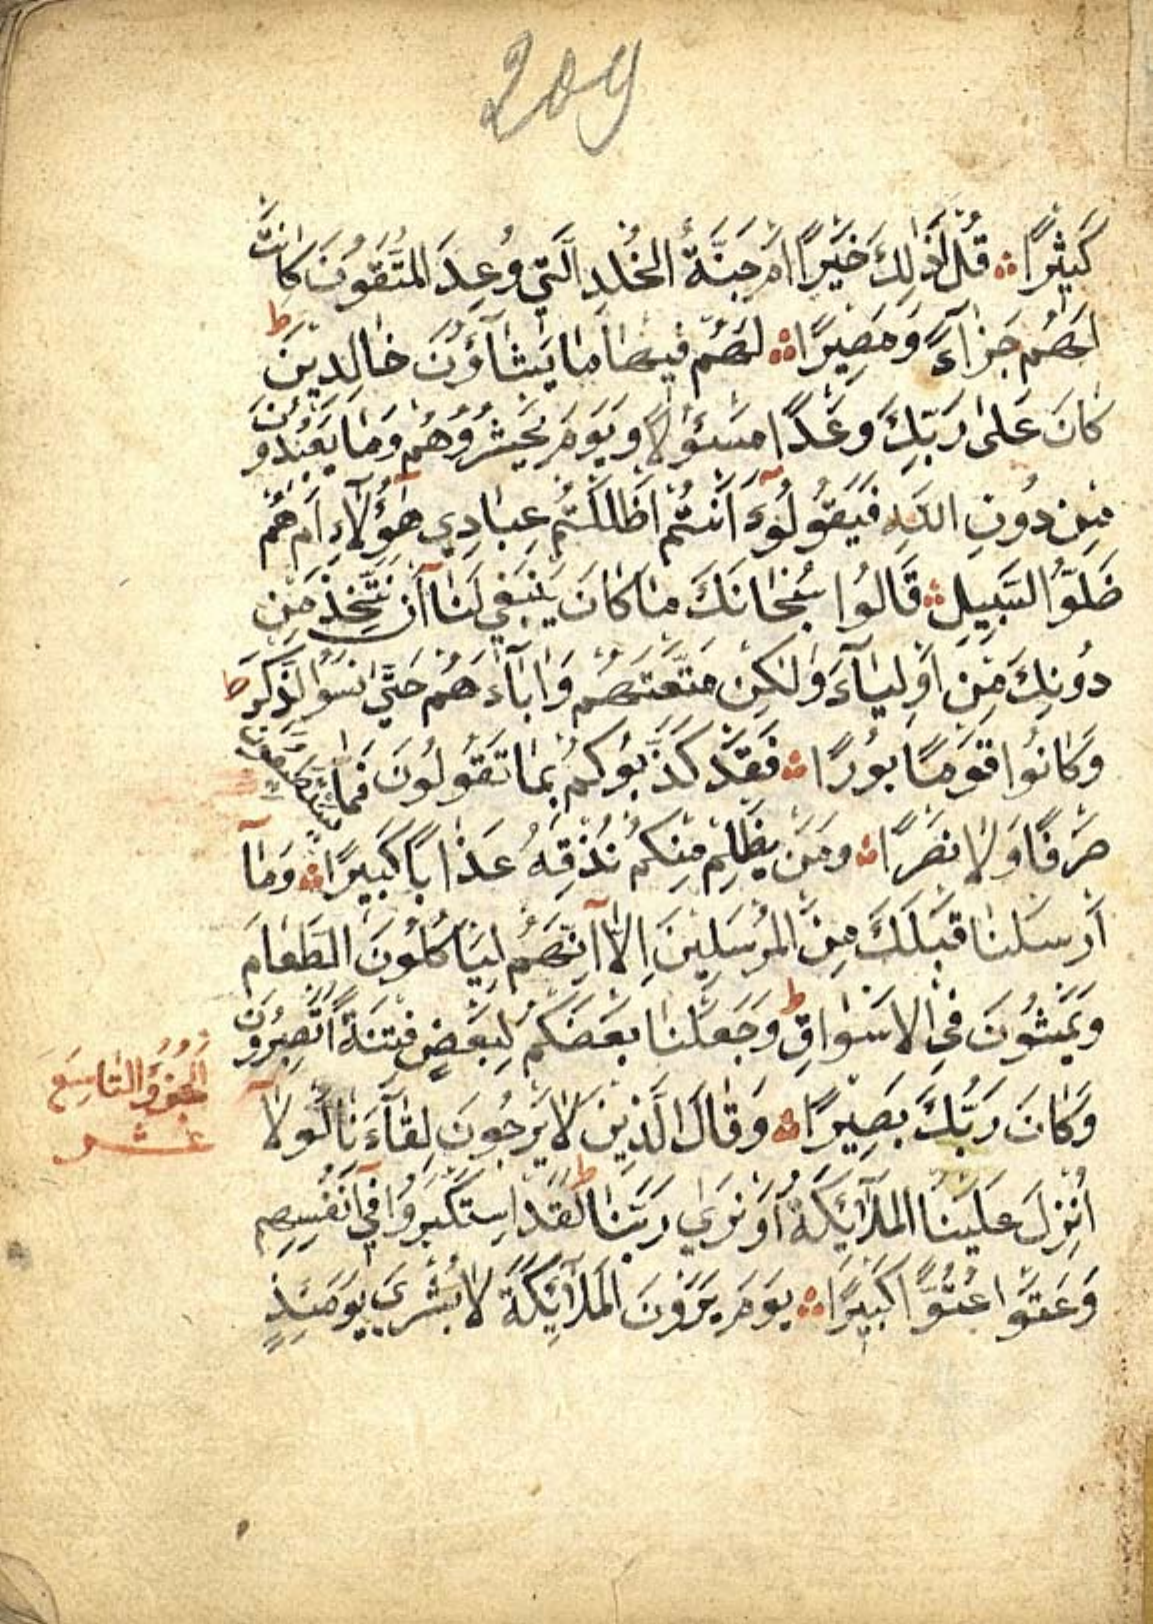 209
كَثِيرًا ۞ قُلْ اَذٰلِكَ خَيْرٌ اَمْ جَنَّةُ الْخُلْدِ الَّتِي وُعِدَ الْمُتَّقُونَ كَانَتْ
لَهُمْ جَزَآءً وَمَصِيرًا ۞ لَهُمْ فِيهَا مَا يَشَآؤُنَ خَالِدِينَ ط
كَانَ عَلٰى رَبِّكَ وَعْدًا مَسْئُولًا وَيَوْمَ يَحْشُرُهُمْ وَمَا يَعْبُدُونَ
مِنْ دُونِ اللّٰهِ فَيَقُولُ ءَاَنْتُمْ اَضْلَلْتُمْ عِبَادِي هٰؤُلَآءِ اَمْ هُمْ
ضَلُّوا السَّبِيلَ ۞ قَالُوا سُبْحَانَكَ مَا كَانَ يَنْبَغِي لَنَآ اَنْ نَتَّخِذَ مِنْ
دُونِكَ مِنْ اَوْلِيَآءَ وَلٰكِنْ مَتَّعْتَهُمْ وَاٰبَآءَهُمْ حَتّٰى نَسُوا الذِّكْرَ ط
وَكَانُوا قَوْمًا بُورًا ۞ فَقَدْ كَذَّبُوكُمْ بِمَا تَقُولُونَ فَمَا تَسْتَطِيعُونَ
صَرْفًا وَلَا نَصْرًا ۞ وَمَنْ يَظْلِمْ مِنْكُمْ نُذِقْهُ عَذَابًا كَبِيرًا ۞ وَمَآ
اَرْسَلْنَا قَبْلَكَ مِنَ الْمُرْسَلِينَ اِلَّآ اِنَّهُمْ لَيَاْكُلُونَ الطَّعَامَ
وَيَمْشُونَ فِي الْاَسْوَاقِ ط وَجَعَلْنَا بَعْضَكُمْ لِبَعْضٍ فِتْنَةً اَتَصْبِرُونَ
وَكَانَ رَبُّكَ بَصِيرًا ۞ وَقَالَ الَّذِينَ لَا يَرْجُونَ لِقَآءَنَا لَوْلَآ
الجُزْءُ التَّاسِعَ
عشر
اُنْزِلَ عَلَيْنَا الْمَلٰٓئِكَةُ اَوْ نَرٰى رَبَّنَا ط لَقَدِ اسْتَكْبَرُوا فِيٓ اَنْفُسِهِمْ
وَعَتَوْا عُتُوًّا كَبِيرًا ۞ يَوْمَ يَرَوْنَ الْمَلٰٓئِكَةَ لَا بُشْرٰى يَوْمَئِذٍ